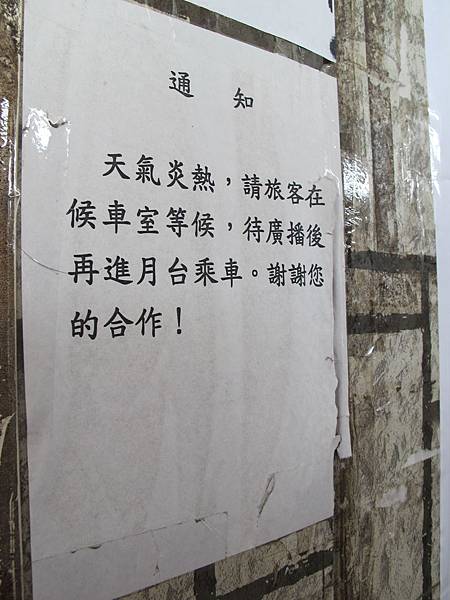 通 知
天氣炎熱，請旅客在
候車室等候，待廣播後
再進月台乘車。謝謝您
的合作！